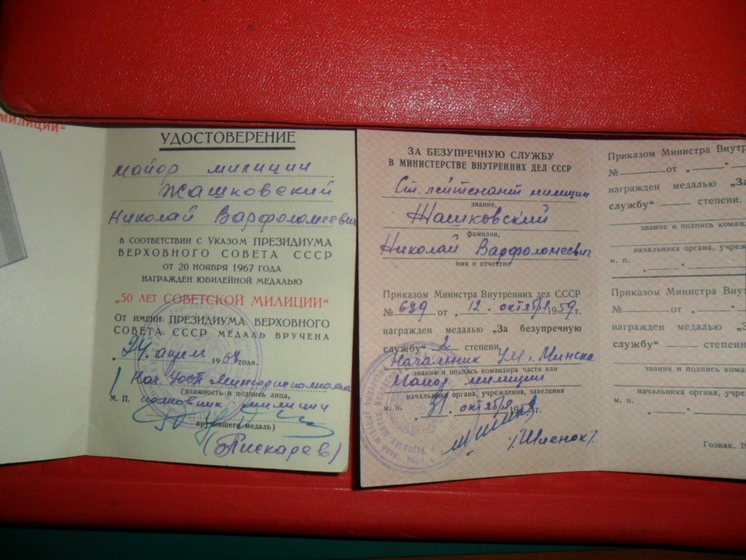 МИЛИЦИИ"
УДОСТОВЕРЕНИЕ
майор милиции
Жашковский
Николай Варфоломеевич
В СООТВЕТСТВИИ С УКАЗОМ ПРЕЗИДИУМА
ВЕРХОВНОГО СОВЕТА СССР
ОТ 20 НОЯБРЯ 1967 ГОДА
НАГРАЖДЕН ЮБИЛЕЙНОЙ МЕДАЛЬЮ
„50 ЛЕТ СОВЕТСКОЙ МИЛИЦИИ"
ОТ ИМЕНИ ПРЕЗИДИУМА ВЕРХОВНОГО
СОВЕТА СССР МЕДАЛЬ ВРУЧЕНА
24 апреля 196 года.
Нач.
(должность и подпись лица,
М. П. полковник милиции
вручившего медаль)
(Пискарев)
ЗА БЕЗУПРЕЧНУЮ СЛУЖБУ
В МИНИСТЕРСТВЕ ВНУТРЕННИХ ДЕЛ СССР
Ст. лейтенант милиции
звание,
Жашковский
фамилия,
Николай Варфоломеевич
имя и отчество
Приказом Министра Внутренних дел СССР
№ 689 от „ 12 " октября 1959 г.
награжден медалью „За безупречную
службу" 2 степени.
Начальник УМ г. Минска
звание и подпись командира части или
Майор милиции
начальника органа, учреждения, заведения
м. п. 31 октября 19 г.
Приказом Министра Внутрен
№ от „
награжден медалью „За
службу" степени.
звание и подпись кома
начальника органа, учреж
м. п.
Приказом Министра Внутрен
№ от „
награжден медалью „За
службу" степени.
звание и подпись кома
начальника органа, учреж
м. п.
Гознак. 1